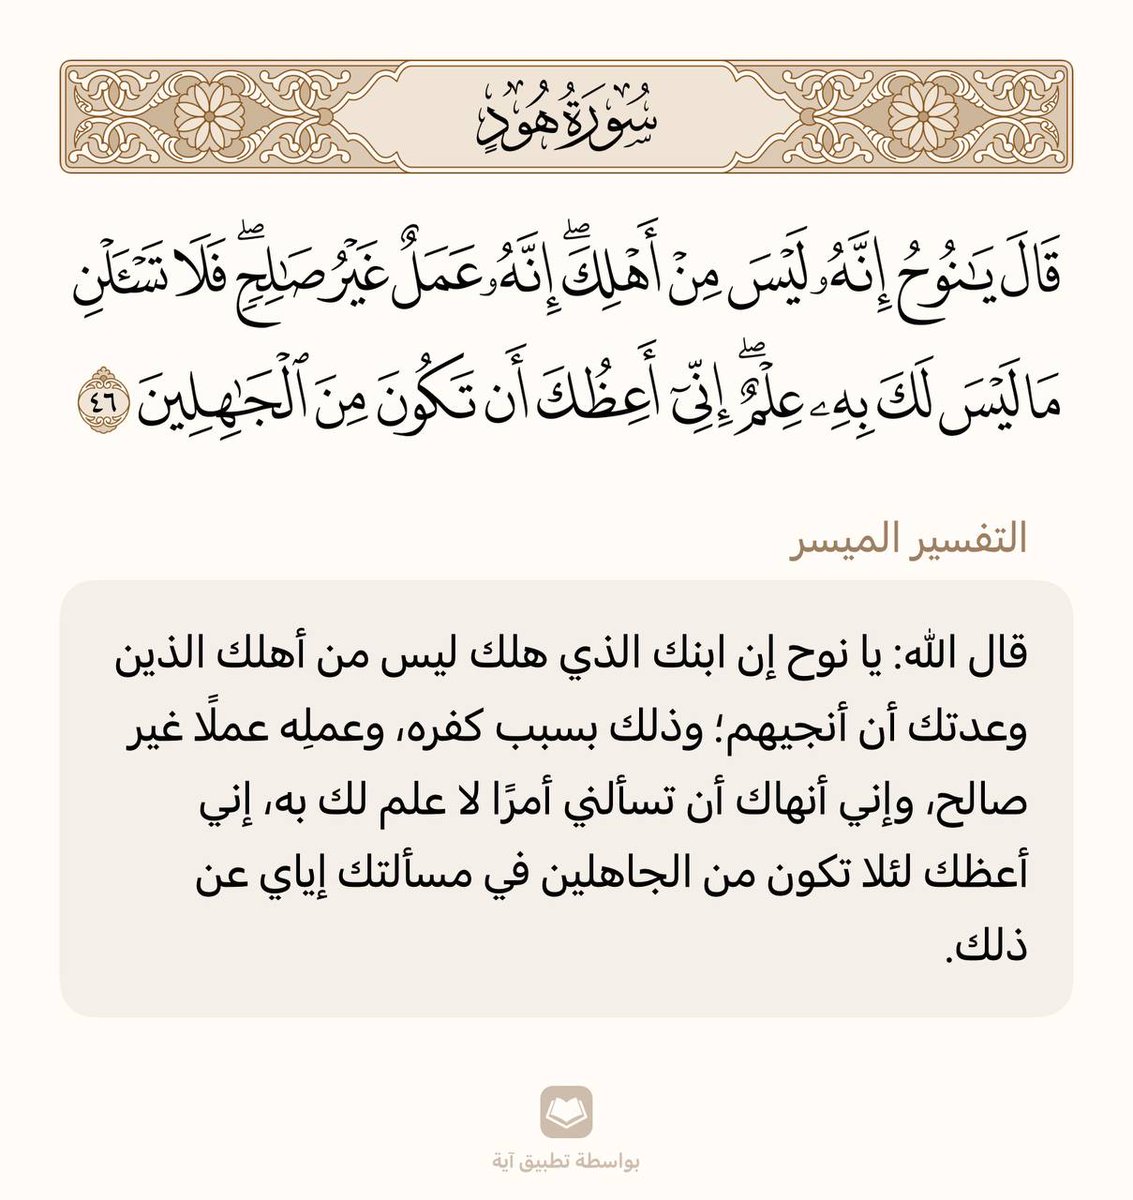 سُورَةُ هُودٍ
قَالَ يَـٰنُوحُ إِنَّهُۥ لَيْسَ مِنْ أَهْلِكَ ۖ إِنَّهُۥ عَمَلٌ غَيْرُ صَـٰلِحٍ ۖ فَلَا تَسْـَٔلْنِ
مَا لَيْسَ لَكَ بِهِۦ عِلْمٌ ۖ إِنِّىٓ أَعِظُكَ أَن تَكُونَ مِنَ ٱلْجَـٰهِلِينَ ٤٦
التفسير الميسر
قال الله: يا نوح إن ابنك الذي هلك ليس من أهلك الذين
وعدتك أن أنجيهم؛ وذلك بسبب كفره، وعملِه عملًا غير
صالح، وإني أنهاك أن تسألني أمرًا لا علم لك به، إني
أعظك لئلا تكون من الجاهلين في مسألتك إياي عن
ذلك.
بواسطة تطبيق آية